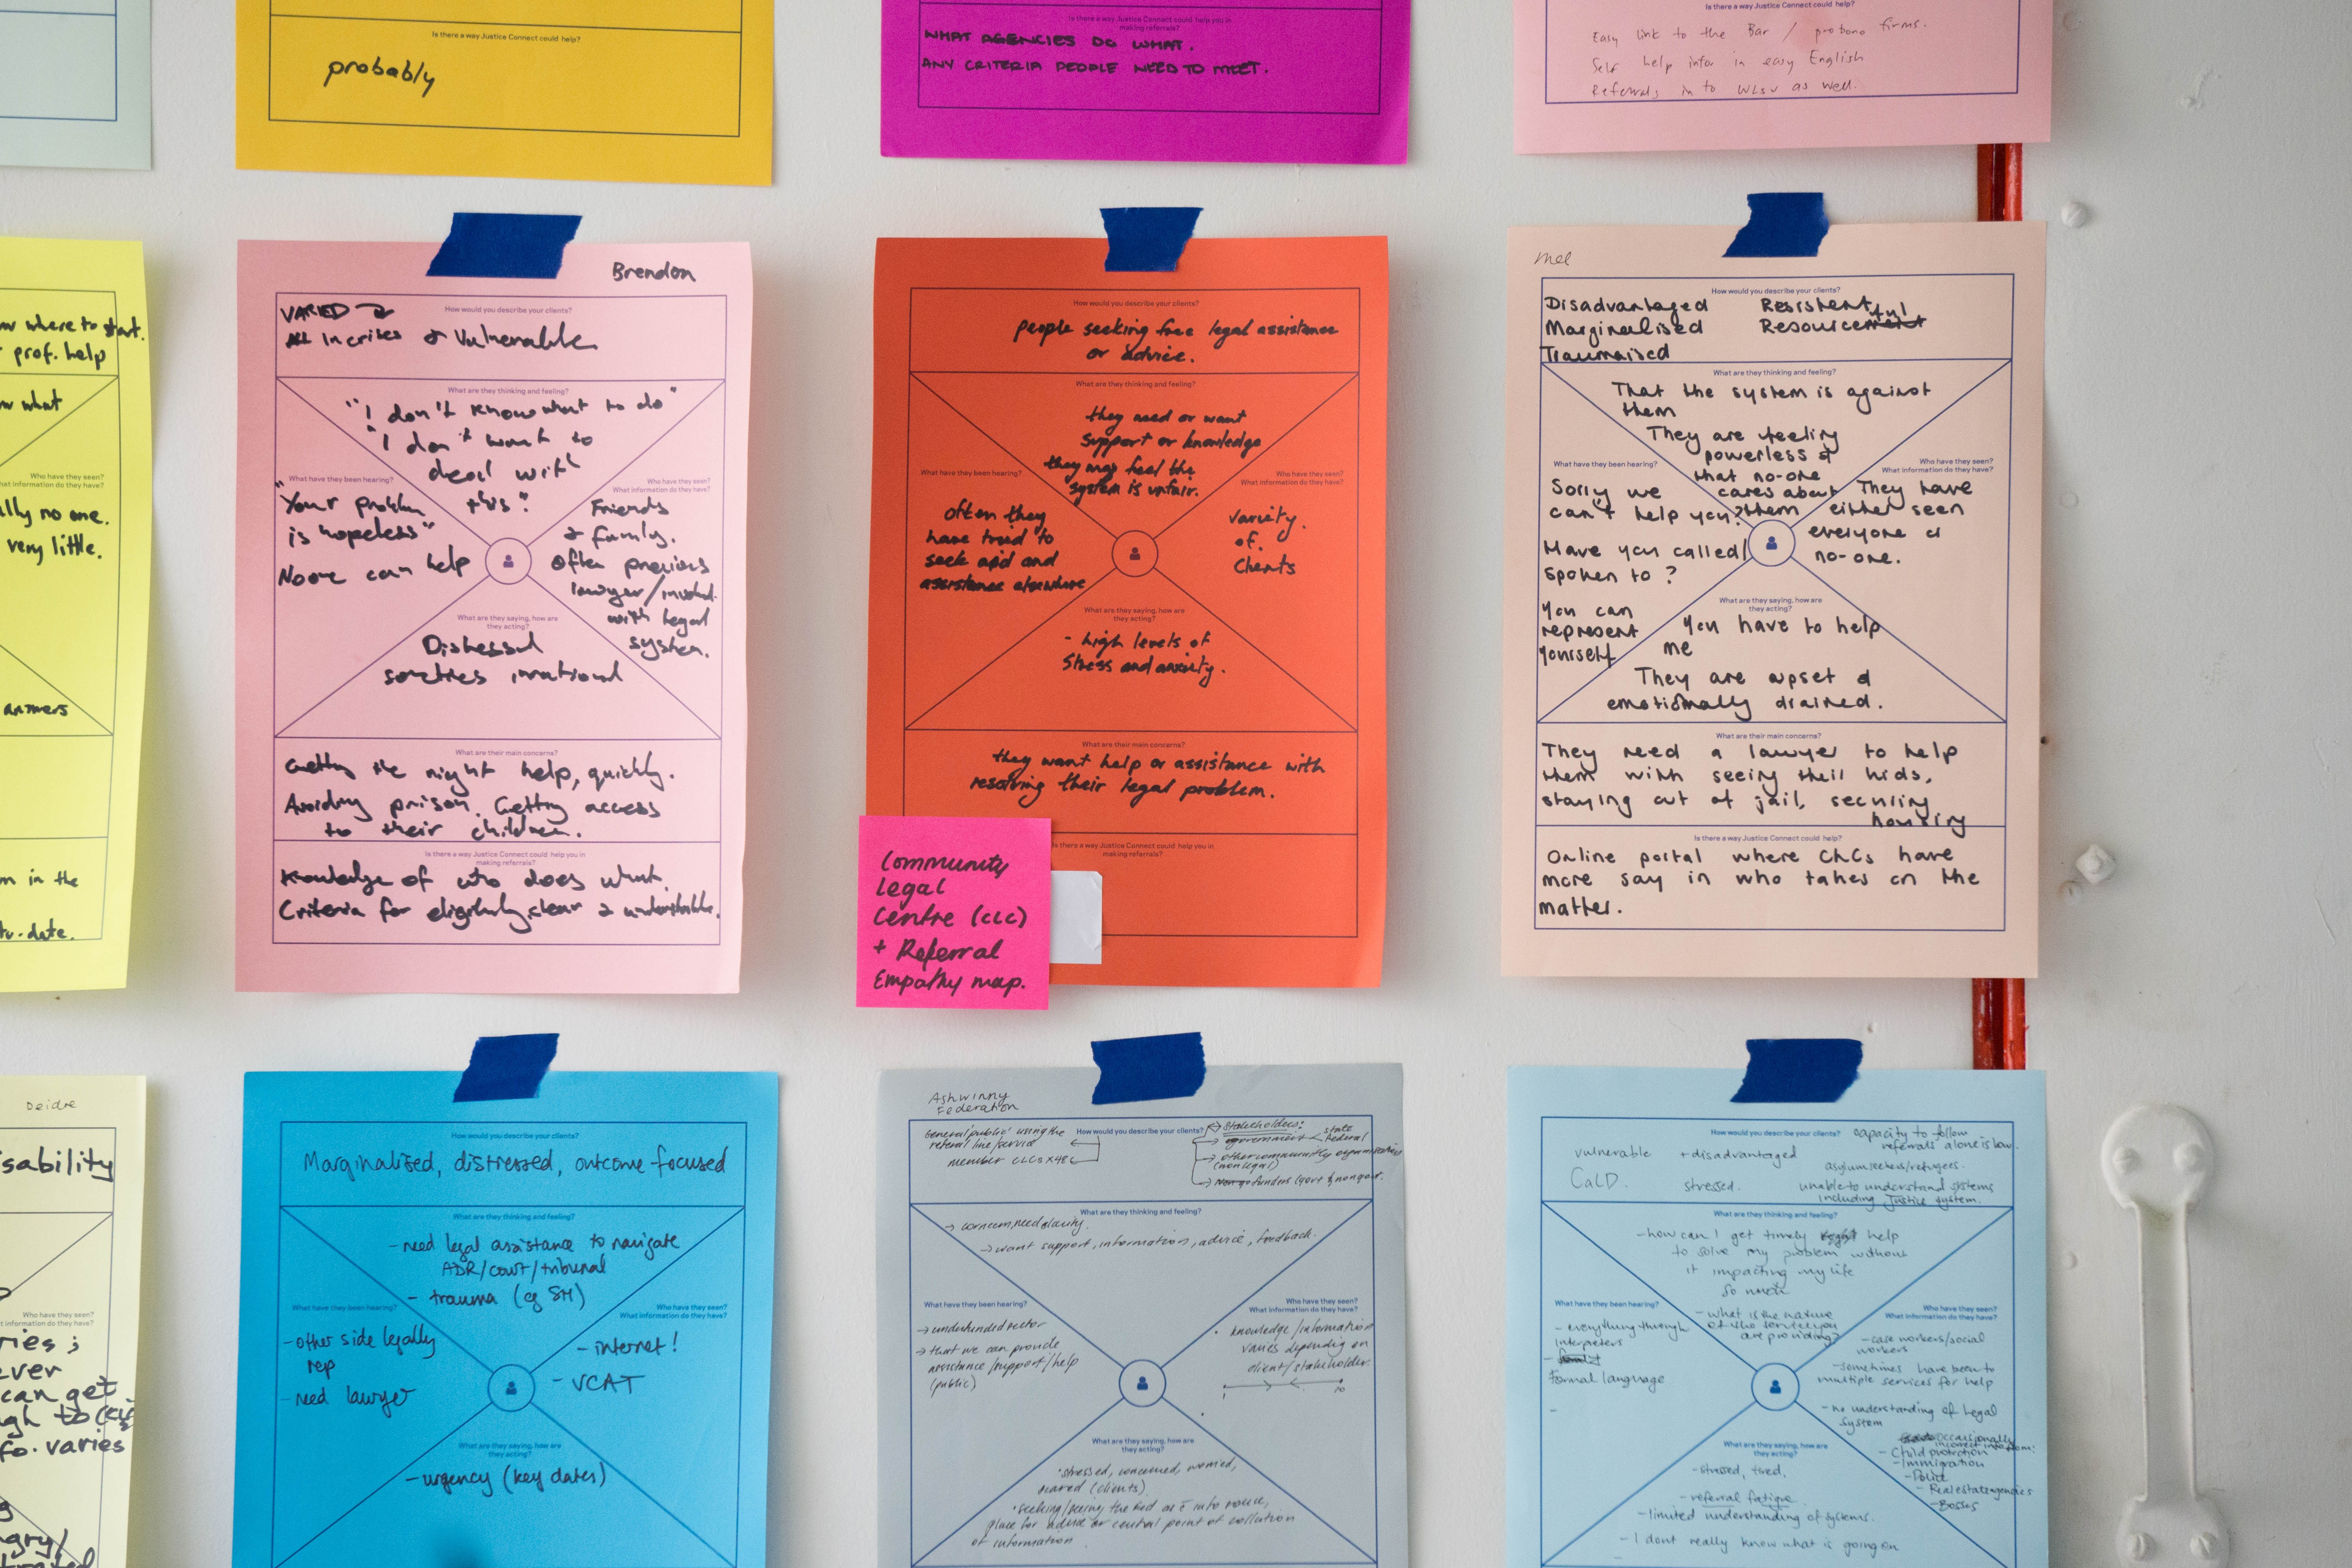 Is there a way Justice Connect could help?
probably
Is there a way Justice Connect could help you in
making referrals?
WHAT AGENCIES DO WHAT.
ANY CRITERIA PEOPLE NEED TO MEET.
Is there a way Justice Connect could help?
Easy link to the Bar / probono firms.
Self help infor in easy English
Referrals in to WLSV as well.
where to start.
prof. help
what
Who have they seen?
What information do they have?
lly no one.
very little.
answers
in the
to-date.
Brendon
How would you describe your clients?
VARIED
All In crises & Vulnerable
What are they thinking and feeling?
"I don't know what to do"
"I don't want to
deal with
this."
What have they been hearing?
"Your problem
is hopeless"
No one can help
Who have they seen?
What information do they have?
Friends
& family.
Often previous
lawyer/involved
with legal
system.
What are they saying, how are
they acting?
Distressed
sometimes irrational
What are their main concerns?
Getting the right help, quickly.
Avoiding prison. Getting access
to their children.
Is there a way Justice Connect could help you in
making referrals?
Knowledge of who does what.
Criteria for eligibility, clear & understandable.
How would you describe your clients?
people seeking free legal assistance
or advice.
What are they thinking and feeling?
they need or want
support or knowledge
they may feel the
system is unfair.
What have they been hearing?
often they
have tried to
seek aid and
assistance elsewhere
Who have they seen?
What information do they have?
variety
of
clients
What are they saying, how are
they acting?
- high levels of
stress and anxiety.
What are their main concerns?
they want help or assistance with
resolving their legal problem.
Is there a way Justice Connect could help you in
making referrals?
Community
Legal
Centre (CLC)
+ Referral
Empathy map.
Mel
How would you describe your clients?
Disadvantaged Resistent
Marginalised Resourceful
Traumaised
What are they thinking and feeling?
That the system is against
them
They are feeling
powerless &
that no-one
cares about
them
What have they been hearing?
Sorry we
can't help you?
Have you called/
spoken to?
You can
represent
yourself
Who have they seen?
What information do they have?
They have
either seen
everyone or
no-one.
What are they saying, how are
they acting?
You have to help
me
They are upset &
emotionally drained.
What are their main concerns?
They need a lawyer to help
them with seeing their kids,
staying out of jail, securing
housing
Is there a way Justice Connect could help?
Online portal where CLCs have
more say in who takes on the
matter.
Deidre
sability
Who have they seen?
What information do they have?
ries;
ever
can get
gh to
fo. varies
gry/
How would you describe your clients?
Marginalised, distressed, outcome focused
What are they thinking and feeling?
- need legal assistance to navigate
ADR/court/tribunal
- trauma (eg SH)
What have they been hearing?
- other side legally
rep
- need lawyer
Who have they seen?
What information do they have?
- internet!
- VCAT
What are they saying, how are
they acting?
- urgency (key dates)
Ashwinny
Federation
How would you describe your clients?
General 'public' using the
referral line/service
member CLCs x48
Stakeholders:
government state
federal
other community organisations
(non legal)
funders (govt & nongovt.
What are they thinking and feeling?
→ concern, need clarity.
→ want support, information, advice, feedback.
What have they been hearing?
→ underfunded sector
→ that we can provide
assistance/support/help
(public)
Who have they seen?
What information do they have?
knowledge/information
varies depending on
client/stakeholder.
1 10
What are they saying, how are
they acting?
• stressed, concerned, worried,
scared (clients)
• seeking/seeing the Fed as info source,
place for advice or central point of collation
of information
How would you describe your clients?
capacity to follow
referrals alone is low.
vulnerable + disadvantaged
asylum seekers/refugees.
CaLD. stressed.
unable to understand systems
including Justice system.
What are they thinking and feeling?
- how can I get timely help
to solve my problem without
it impacting my life
so much
- what is the nature
of the service you
are providing?
What have they been hearing?
- everything through
interpreters
Formal language
Who have they seen?
What information do they have?
- case workers/social
workers
- sometimes have been to
multiple services for help
- no understanding of legal
system
occasionally
incorrect info from:
- Child protection
- Immigration
- Police
- Real estate agencies
- Bosses
What are they saying, how are
they acting?
- stressed, tired.
- referral fatigue
- limited understanding of systems.
- I dont really know what is going on